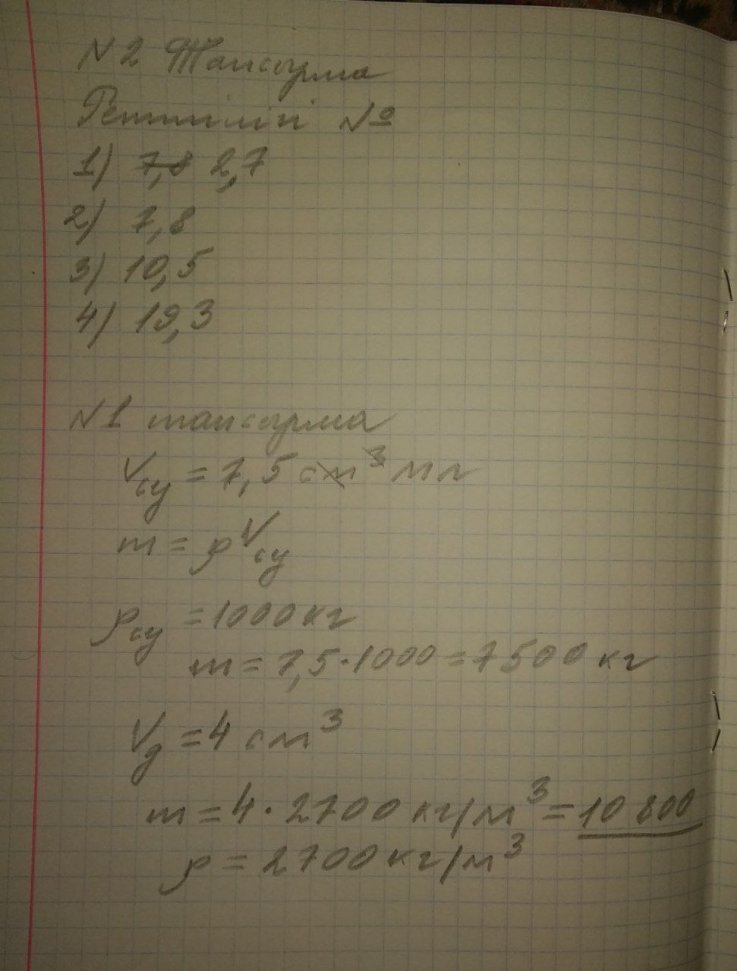 N2 Тапсырма
Реттілігі №
1) 7,8 2,7
2) 7,8
3) 10,5
4) 19,3
N1 тапсырма
Vсу = 7,5 см³ мл
m = ρVсу
ρсу = 1000 кг
m = 7,5 · 1000 = 7500 кг
Vд = 4 см³
m = 4 · 2700 кг/м³ = 10 800
ρ = 2700 кг/м³